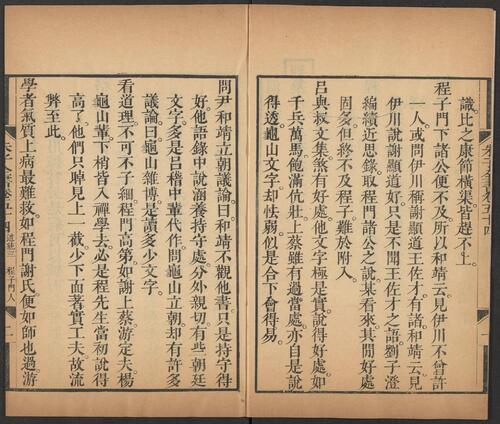 識比之康節橫渠皆趕不上。
程子門下諸公便不及所以和靖云見伊川不曾許
一人。或問伊川稱謝顯道王佐才有諸。和靖云見
伊川說謝顯道好只是不聞王佐才之語。劉子澄
編續近思錄取程門諸公之說某看來其間好處
固多但終不及程子難於附入。
呂與叔文集煞有好處他文字極是實說得好處如
千兵萬馬飽滿伉壯。上蔡雖有過當處亦自是說
得透。龜山文字却怯弱。似是合下會得易。
問尹和靖立朝議論。曰和靖不觀他書只是持守得
好。他語錄中說涵養持守處分外親切。有些朝廷
文字多是呂稽中輩代作。問龜山立朝却有許多
議論。曰龜山雜博是讀多少文字。
看道理不可不子細。程門高弟如謝上蔡游定夫楊
龜山輩下梢皆入禪學去。必是程先生當初說得
高了他們只晫見上一截少下面著實工夫故流
弊至此。
學者氣質上病最難救。如程門謝氏便如師也過游
道統三
程子門人